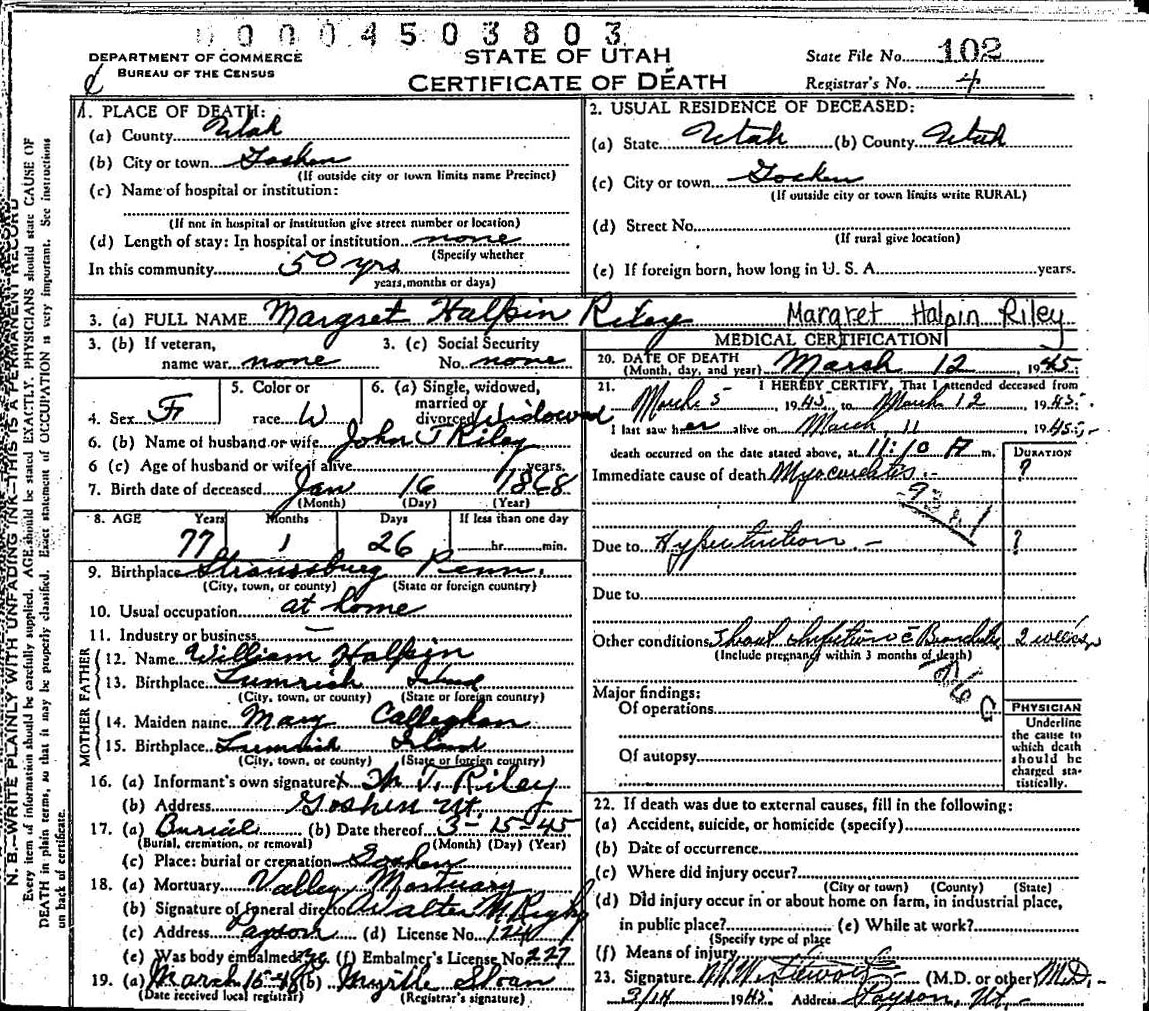 0 0 0 0 4 5 0 3 8 0 3
DEPARTMENT OF COMMERCE
BUREAU OF THE CENSUS
STATE OF UTAH
CERTIFICATE OF DEATH
State File No. 102
Registrar's No. 4
N. B.—WRITE PLAINLY WITH UNFADING INK—THIS IS A PERMANENT RECORD
Every item of information should be carefully supplied. AGE should be stated EXACTLY. PHYSICIANS should state CAUSE OF
DEATH in plain terms, so that it may be properly classified. Exact statement of OCCUPATION is very important. See instructions
on back of certificate.
1. PLACE OF DEATH:
(a) County Utah
(b) City or town Goshen
(If outside city or town limits name Precinct)
(c) Name of hospital or institution:
(If not in hospital or institution give street number or location)
(d) Length of stay: In hospital or institution none
(Specify whether
In this community 50 yrs
years, months or days)
2. USUAL RESIDENCE OF DECEASED:
(a) State Utah (b) County Utah
(c) City or town Goshen
(If outside city or town limits write RURAL)
(d) Street No.
(If rural give location)
(e) If foreign born, how long in U. S. A. years.
3. (a) FULL NAME Margret Halpin Riley Margret Halpin Riley
3. (b) If veteran, name war none
3. (c) Social Security No. none
4. Sex F
5. Color or race W
6. (a) Single, widowed, married or divorced Widowed
6. (b) Name of husband or wife John T Riley
6 (c) Age of husband or wife if alive years.
7. Birth date of deceased Jan 16 1868
(Month) (Day) (Year)
8. AGE Years Months Days If less than one day
77 1 26 hr. min.
9. Birthplace Straussburg Penn.
(City, town, or county) (State or foreign country)
10. Usual occupation at home
11. Industry or business —
FATHER
12. Name William Halpin
13. Birthplace Lumrich Irland
(City, town, or county) (State or foreign country)
MOTHER
14. Maiden name Mary Calleghan
15. Birthplace Lumrich Irland
(City, town, or county) (State or foreign country)
16. (a) Informant's own signature X M T. Riley
(b) Address Goshen Ut.
17. (a) Burial (b) Date thereof 3-15-45
(Burial, cremation, or removal) (Month) (Day) (Year)
(c) Place: burial or cremation Goshen
18. (a) Mortuary Valley Mortuary
(b) Signature of funeral director Walter M Rigby
(c) Address Payson (d) License No. 124
(e) Was body embalmed? (f) Embalmer's License No. 227
19. (a) March 15-45 (b) Myrtle Sloan
(Date received local registrar) (Registrar's signature)
MEDICAL CERTIFICATION
20. DATE OF DEATH March 12, 1945
(Month, day, and year)
21. I HEREBY CERTIFY, That I attended deceased from
March 5, 1945 to March 12, 1945
I last saw her alive on March 11 1945
death occurred on the date stated above, at 11:10 A m.
DURATION
Immediate cause of death Myocarditis ?
93 d 1
Due to Hypertension ?
Due to
Other conditions Throat infection c̄ Bronchitis 2 weeks
(Include pregnancy within 3 months of death)
Major findings:
Of operations
Of autopsy
PHYSICIAN
Underline
the cause to
which death
should be
charged sta-
tistically.
22. If death was due to external causes, fill in the following:
(a) Accident, suicide, or homicide (specify)
(b) Date of occurrence
(c) Where did injury occur?
(City or town) (County) (State)
(d) Did injury occur in or about home on farm, in industrial place,
in public place? (e) While at work?
(Specify type of place
(f) Means of injury
23. Signature Stewart (M.D. or other) M.D.
3/14 1945 Address Payson, Ut.